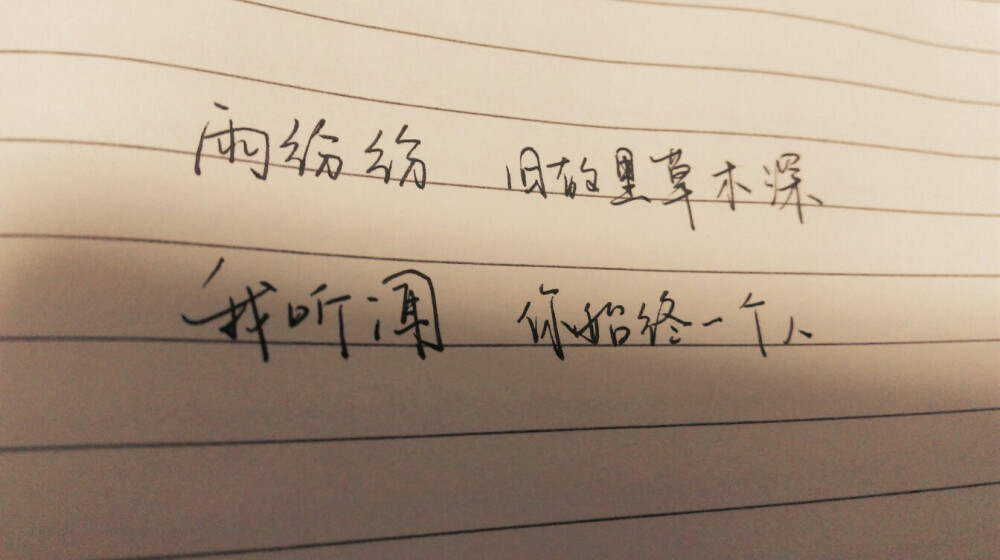 雨纷纷 旧故里草木深
我听闻 你始终一个人